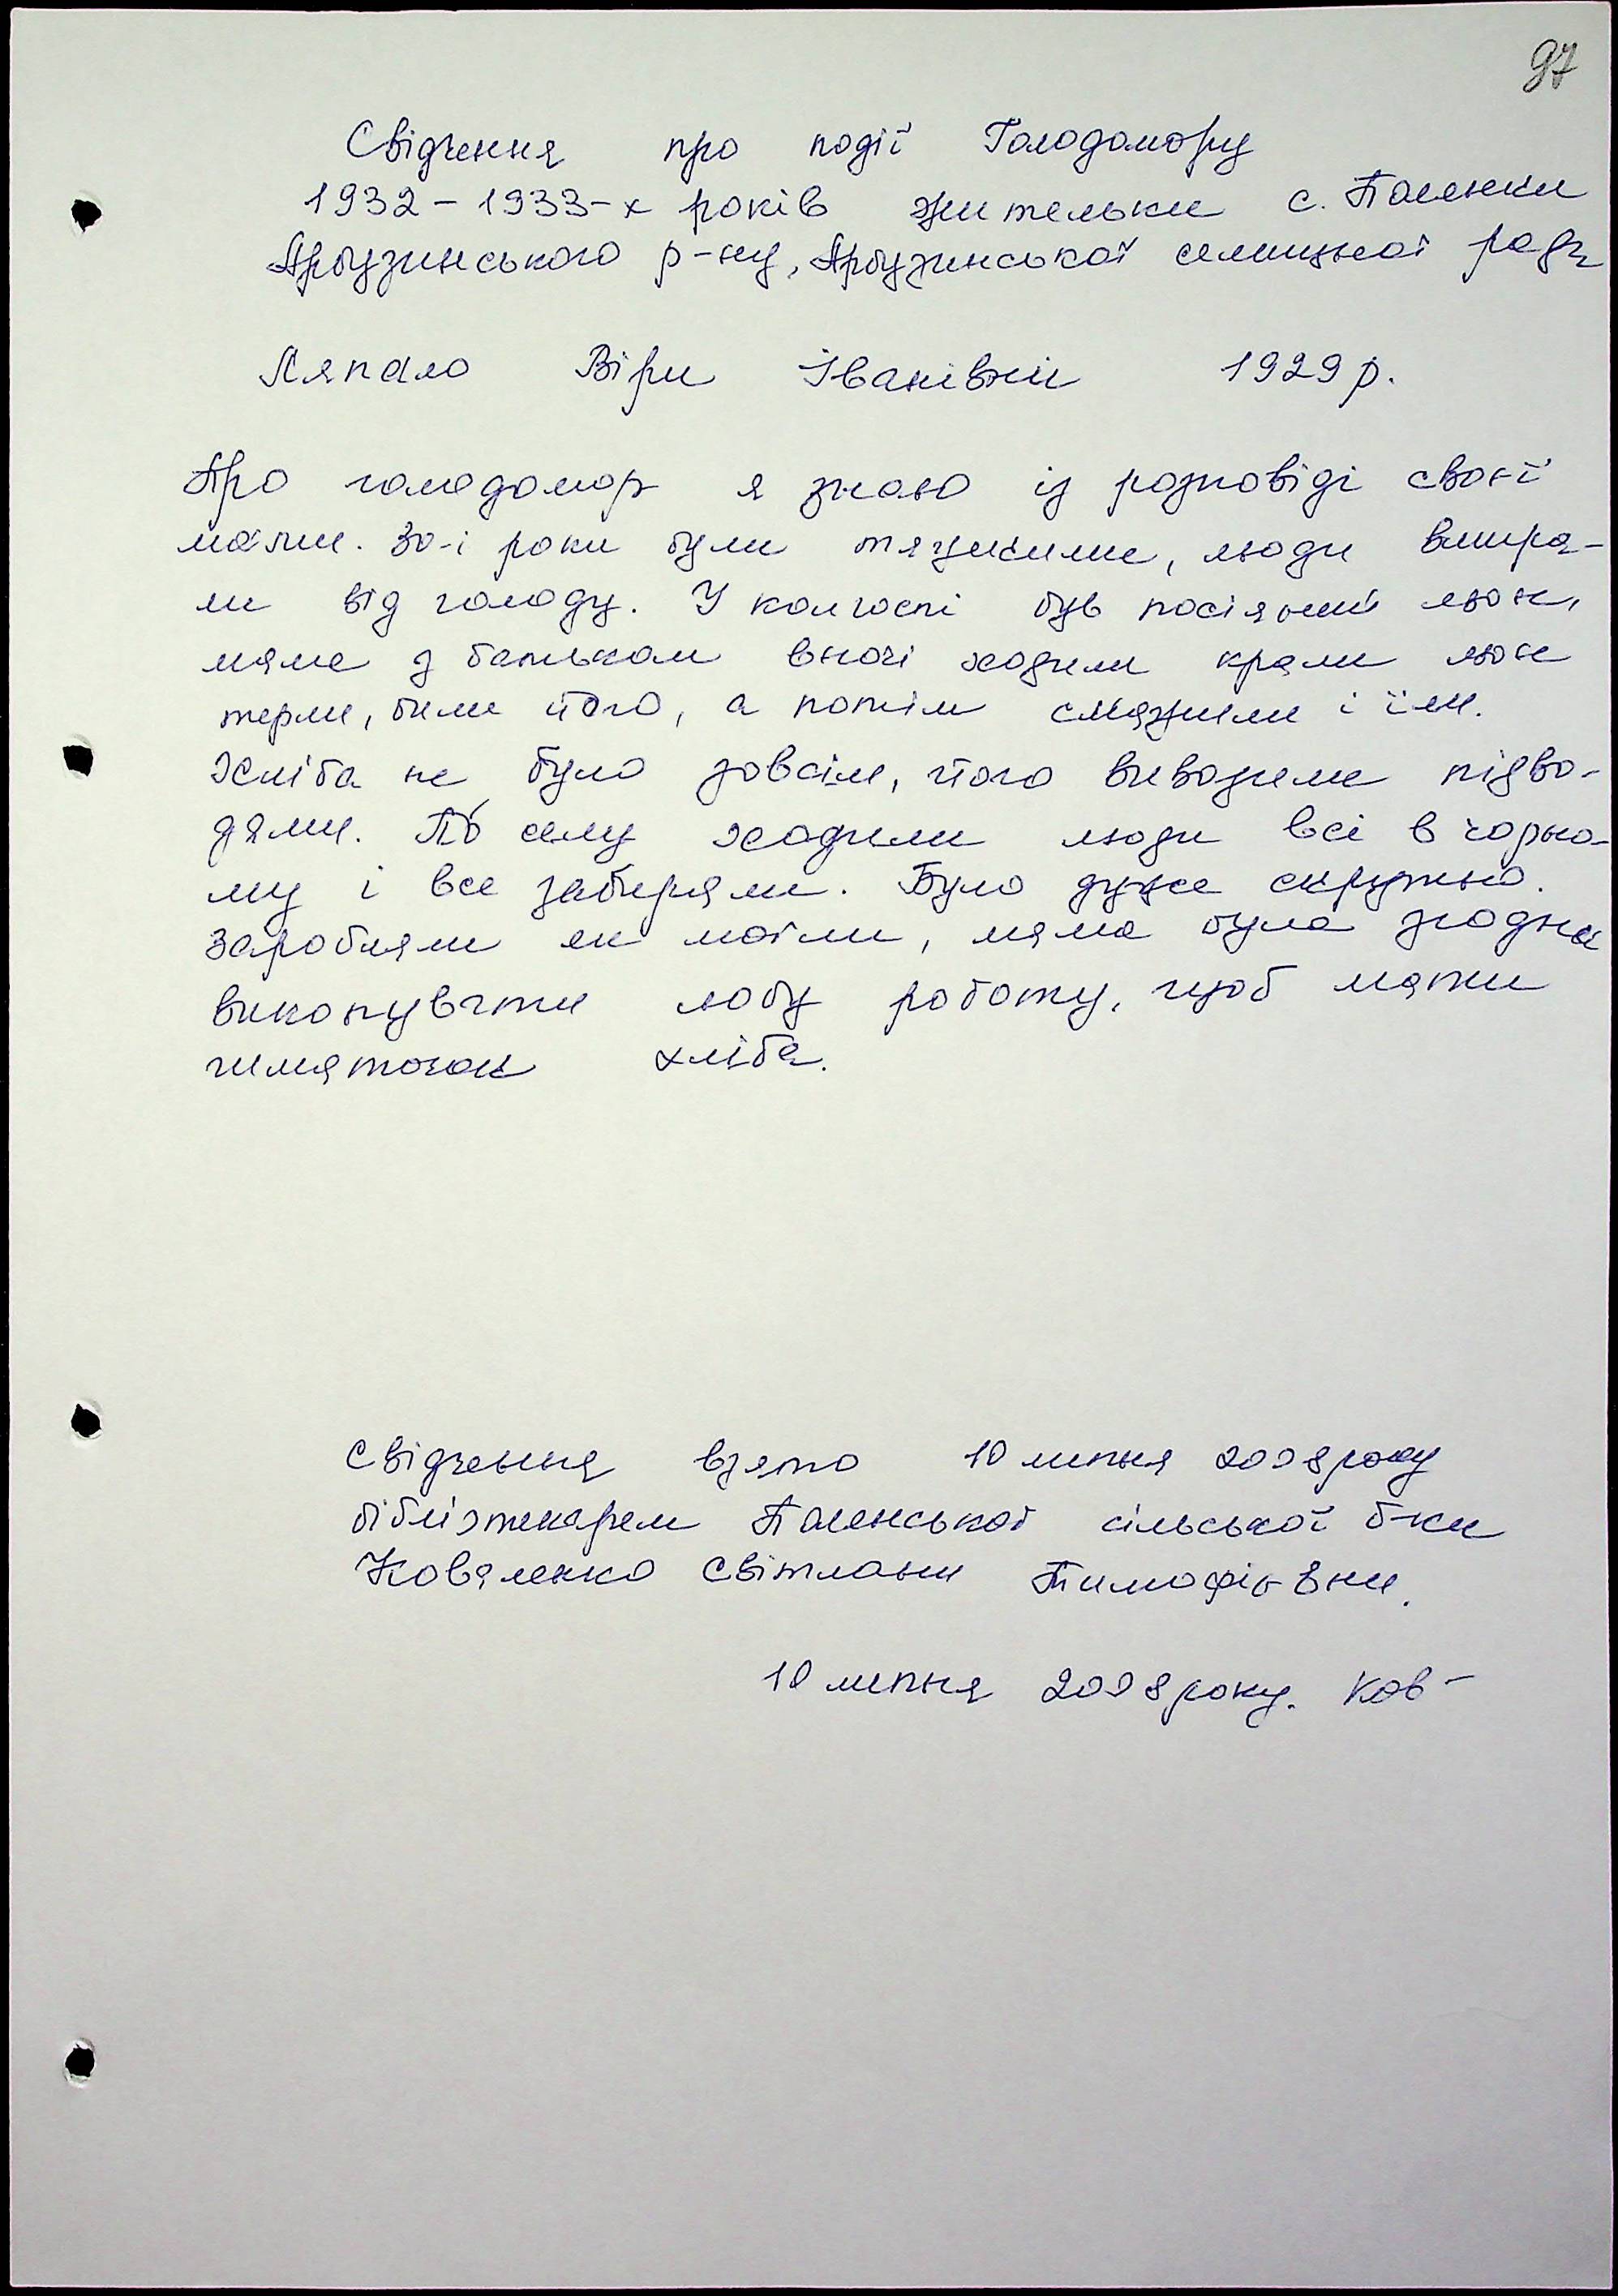 97
Свідчення про події Голодомору
1932-1933-х років жительки с. Полянки
Арбузинського р-ну, Арбузинської селищної ради
Ляпало Віри Іванівни 1929 р.
Про голодомор я знаю із розповіді своєї
мами. 30-і роки були тяжкими, люди вмира-
ли від голоду. У колгоспі був посіяний льон,
мама з батьком вночі ходили крали льон
терли, били його, а потім смажили і їли.
Хліба не було зовсім, його вивозили підво-
дами. По селу ходили люди всі в чорно-
му і все забирали. Було дуже скрутно.
Заробляли як могли, мама була згодна
виконувати любу роботу, щоб мати
шматочок хліба.
Свідчення взято 10 липня 2008 року
бібліотекарем Полянської сільської б-ки
Коваленко Світлани Тимофіївни.
10 липня 2008 року. Ков-